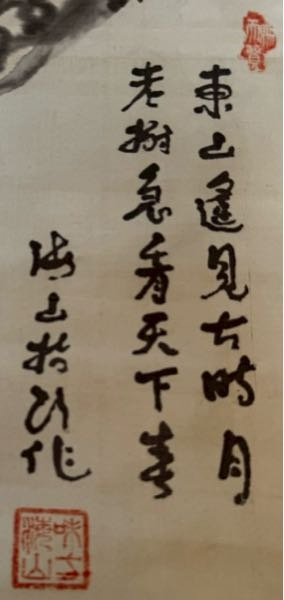 東山遙見古時月
老樹忽看天下春
海山指頭作